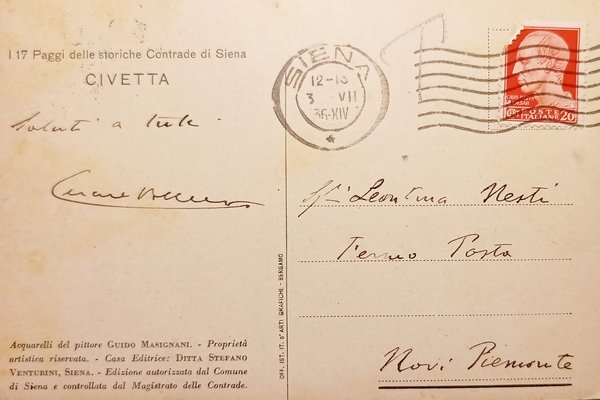 I 17 Paggi delle storiche Contrade di Siena
CIVETTA
Saluti a tutti
Acquarelli del pittore GUIDO MASIGNANI. - Proprietà
artistica riservata. - Casa Editrice: DITTA STEFANO
VENTURINI, SIENA. - Edizione autorizzata dal Comune
di Siena e controllata dal Magistrato delle Contrade.
OFF. IST. IT. D'ARTI GRAFICHE - BERGAMO
SIENA
12-13
3 VII
36·XIV
POSTE
ITALIANE 20
Leontina Nesti
Fermo Posta
Novi Piemonte